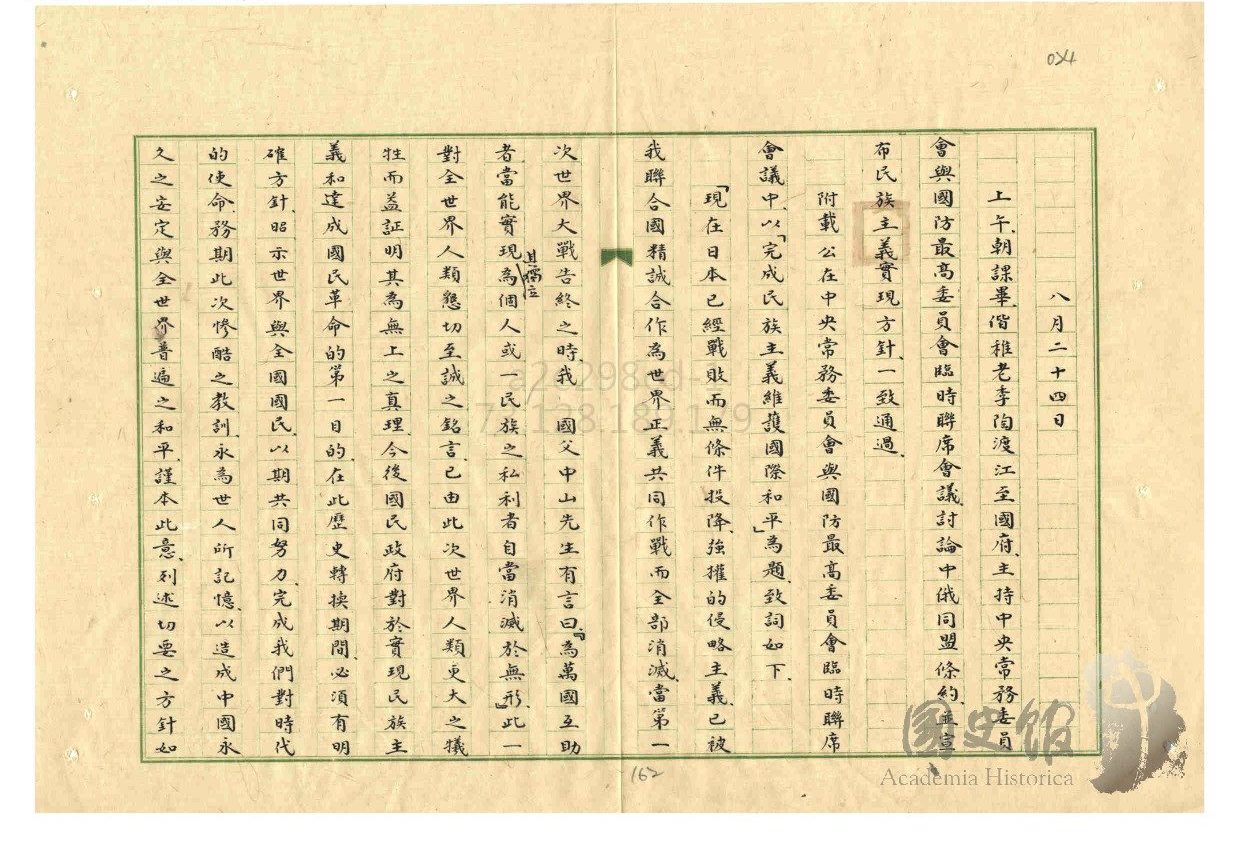 044
八月二十四日
上午、朝課畢、偕稚老季陶渡江至國府、主持中央常務委員
會與國防最高委員會臨時聯席會議、討論中俄同盟條約、並宣
布民族主義實現方針、一致通過、
附載 公在中央常務委員會與國防最高委員會臨時聯席
會議中、以「完成民族主義維護國際和平」為題、致詞如下、
「現在日本已經戰敗而無條件投降、強權的侵略主義、已被
我聯合國精誠合作為世界正義共同作戰而全部消滅、當第一
次世界大戰告終之時、我 國父中山先生有言曰、『為萬國互助
者當能實現、為個人或一民族之私利者自當消滅於無形、』此一
對全世界人類懇切至誠之銘言、已由此次世界人類更大之犧
牲而益証明其為無上之真理、今後國民政府對於實現民族主
義和達成國民革命的第一目的、在此歷史轉換期間、必須有明
確方針、昭示世界與全國國民、以期共同努力、完成我們對時代
的使命、務期此次慘酷之教訓、永為世人所記憶、以造成中國永
久之安定與全世界普遍之和平、謹本此意、列述切要之方針如
162
國史館
Academia Historica